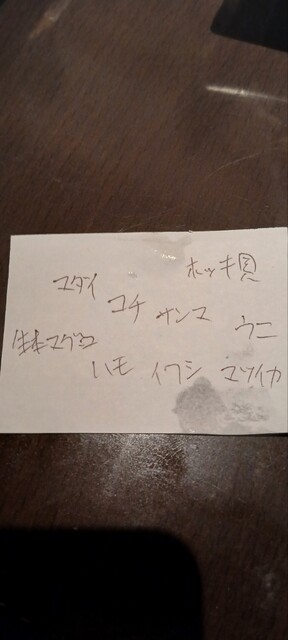 マダイ
ホッキ貝
コチ
サンマ
ウニ
生本マグロ
ハモ
イワシ
マツイカ